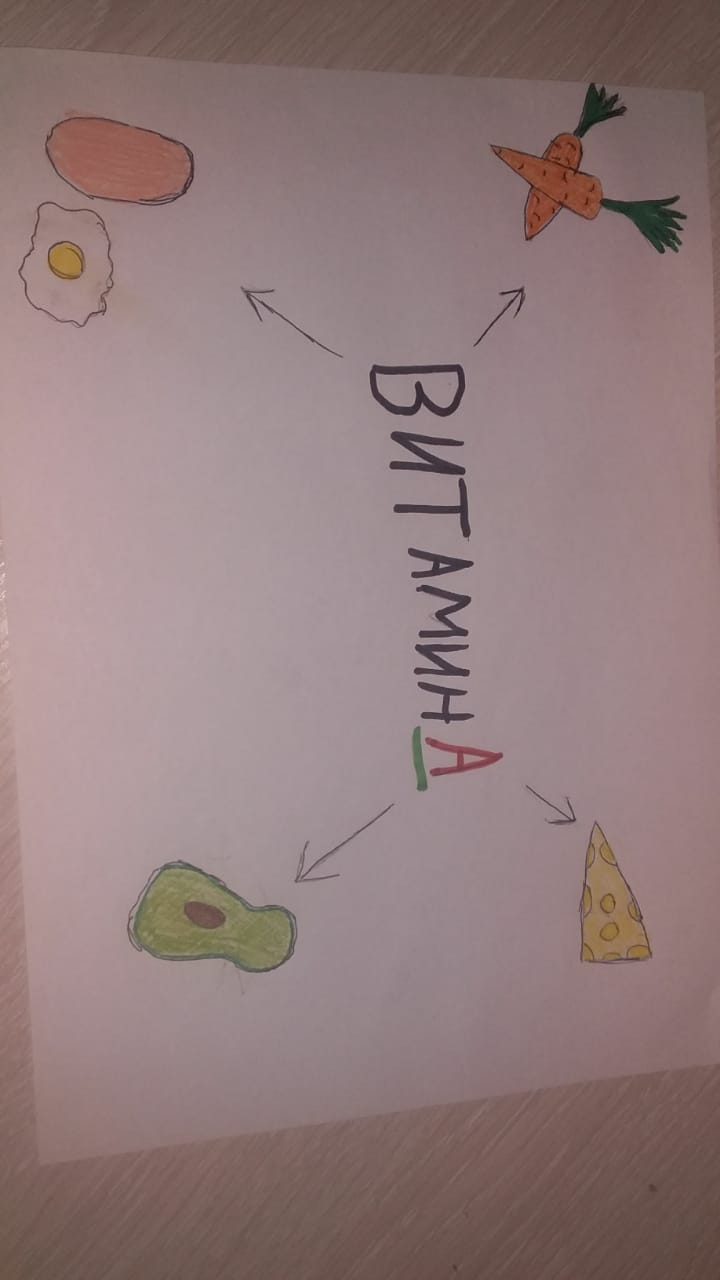 ВИТАМИН А